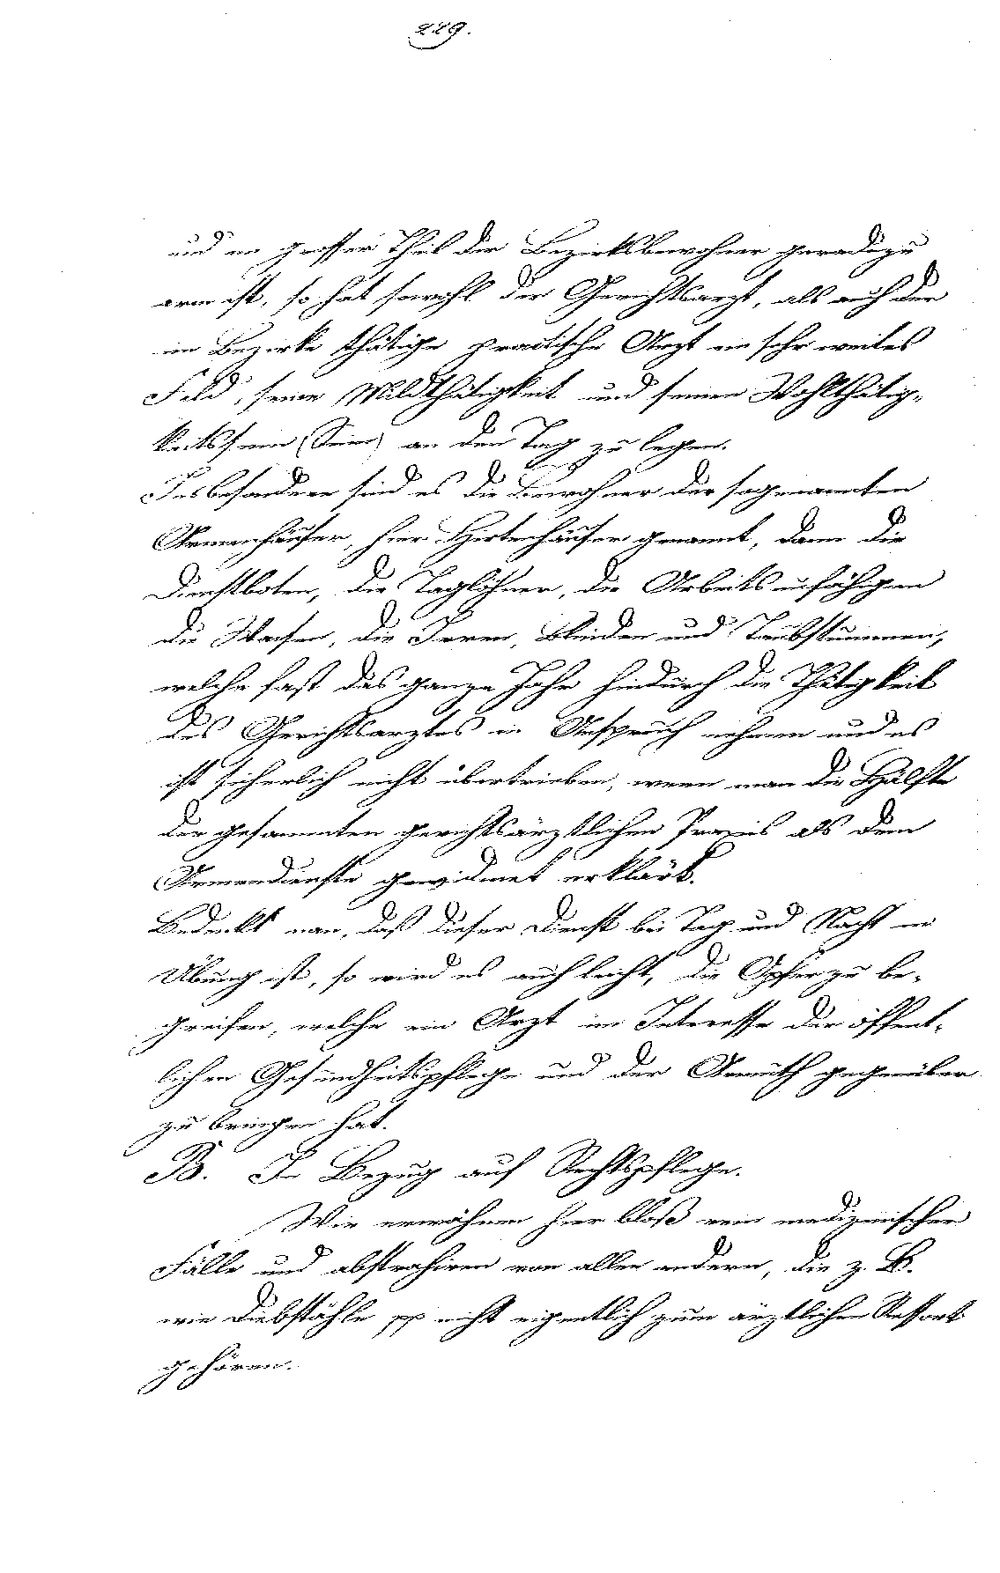 229.
und ein grosser Theil der Bezirksbewohner geradezu
arm ist, so hat sowohl der Gerichtsarzt, als auch der
im Bezirke thätige practische Arzt ein sehr weites
Feld, seine Mildthätigkeit und seinen Wohlthätig-
keitssinn (Sinn) an den Tag zu legen.
Insbesondere sind es die Bewohner der sogenannten
Armenhäuser, hier Hirtenhäuser genannt, dann die
Dienstboten, die Taglöhner, die Arbeitsunfähigen
die Waisen, die Irren, Blinden und Taubstummen,
welche fast das ganze Jahr hindurch die Thätigkeit
des Gerichtsarztes in Anspruch nehmen und es
ist sicherlich nicht übertrieben, wenn man die Hälfte
der gesammten gerichtsärztlichen Praxis als dem
Armendienste gewidmet erklärt.
Bedenkt man, daß dieser Dienst bei Tag und Nacht in
Übung ist, so wird es auch leicht, die Opfer zu be-
greifen, welche ein Arzt im Interesse der öffent-
lichen Gesundheitspflege und der Armuth gegenüber
zu bringen hat.
B. In Bezug auf Rechtspflege.
Wir erwähnen hier bloß rein medizinischer
Fälle und abstrahiren von allen andern, die z. B.
wie Diebstähle pp nicht eigentlich zum ärztlichen Ressort
gehören.